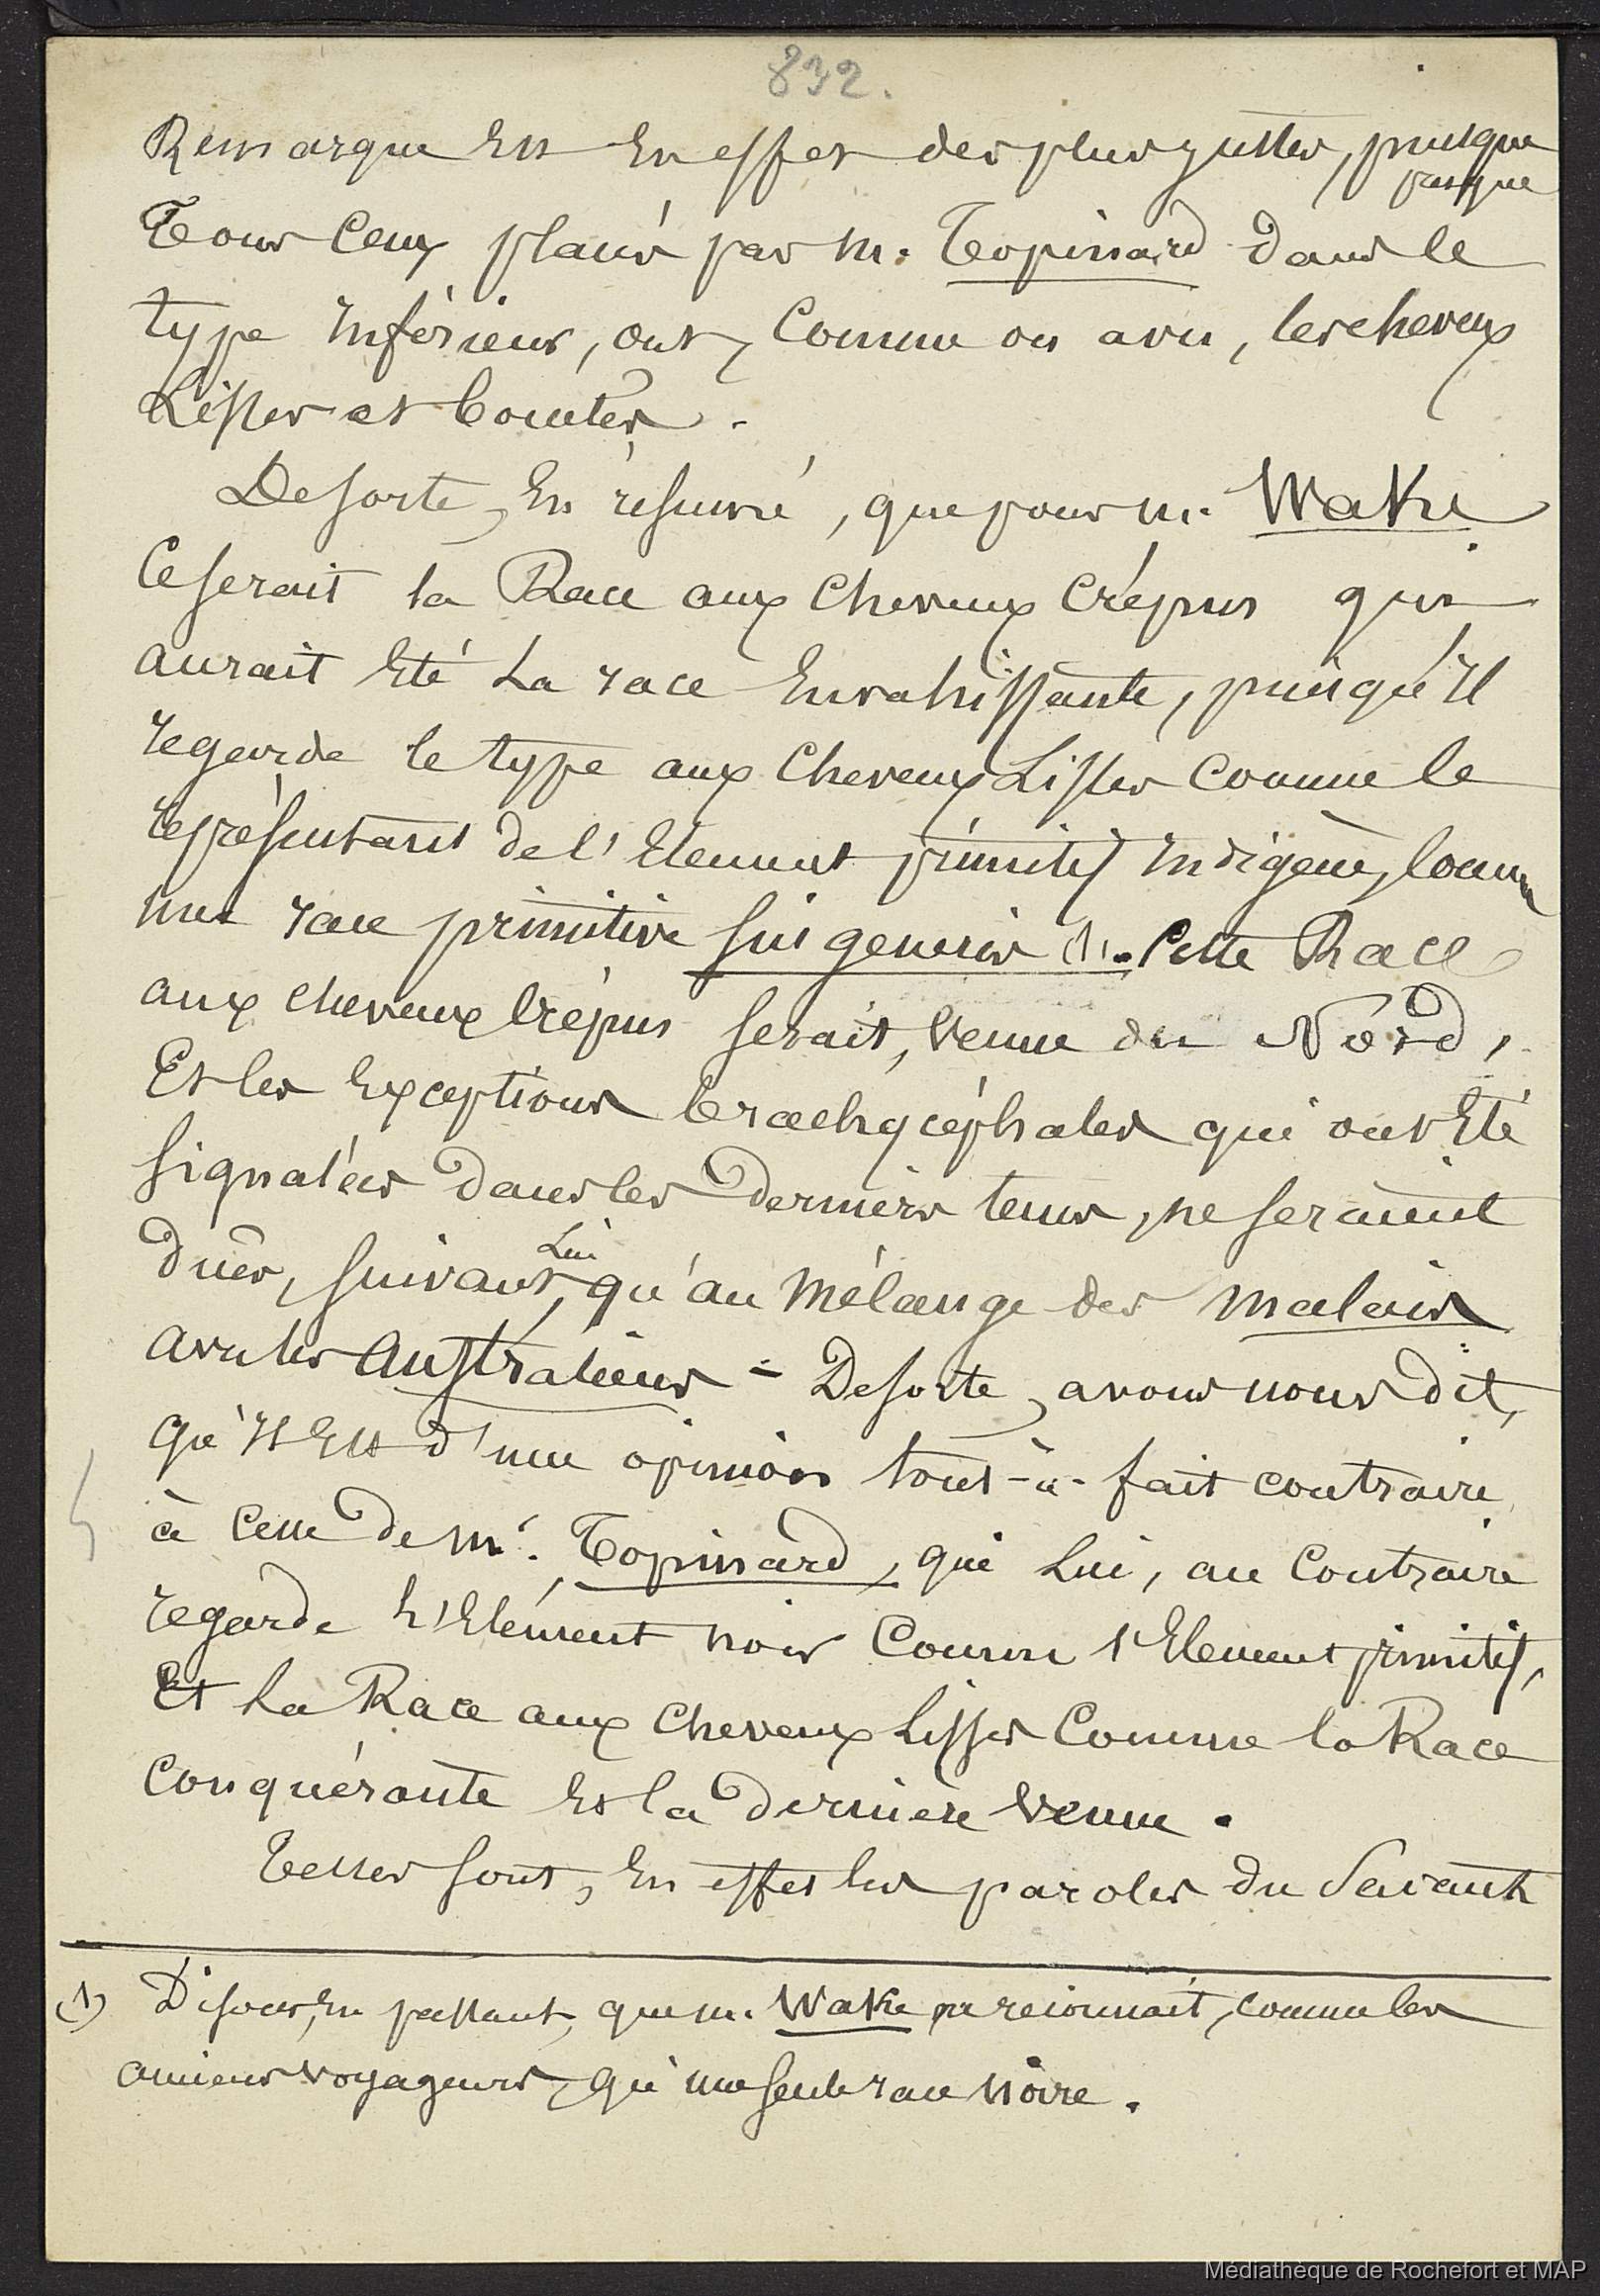 832.
Remarque Est En effet des plus justes, puisque
presque
Tous Ceux placés par M. Topinard dans le
type Inférieur, ont, Comme on a vu, les cheveux
Lisses et Courtes.
De sorte, En résumé, que pour M. Wake
Ce serait la Race aux Cheveux Crépus qui
aurait Eté La race Envahissante, puisqu'Il
regarde le type aux Cheveux Lisses Comme le
représentant de l'Elément primitif Indigène, Comme
une race primitive sui generis (1). Cette Race
aux cheveux Crépus serait, venue du Nord,
Et les Exceptions brachycéphales qui ont Eté
signalées dans les derniers tems, ne seraient
Lui
dues, suivant, qu'au Mélange des Malais
avec les Australiens - De sorte, avons nous dit,
qu'Il Est d'une opinion tout-à-fait contraire
à Celle de Mr. Topinard, qui Lui, au Contraire
regarde l'Elément noir Comme l'Elément primitif,
Et La Race aux Cheveux Lisses Comme la Race
Conquérante Et la dernière venue.
Telles sont, En effet les paroles du Savant
(1) Disons, En passant, que M. Wake ne reconnait, comme les
anciens voyageurs, qu'une seule race noire.
Médiathèque de Rochefort et MAP